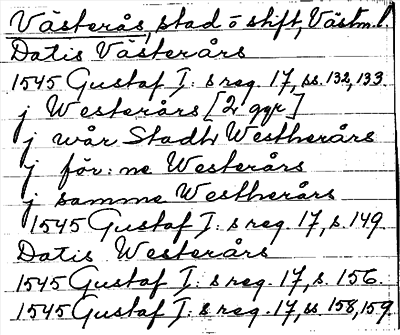 Västerås, stad o stift, Västm. l
Datis Västerårs
1545 Gustaf I:s reg. 17, ss. 132, 133
j Westerårs [2 ggr]
j wår Stadh Westherårs
j för:ne Westerårs
j samme Westherårs
1545 Gustaf I:s reg. 17, s. 149
Datis Westerårs
1545 Gustaf I:s reg. 17, s. 156
1545 Gustaf I:s reg. 17, ss. 158, 159